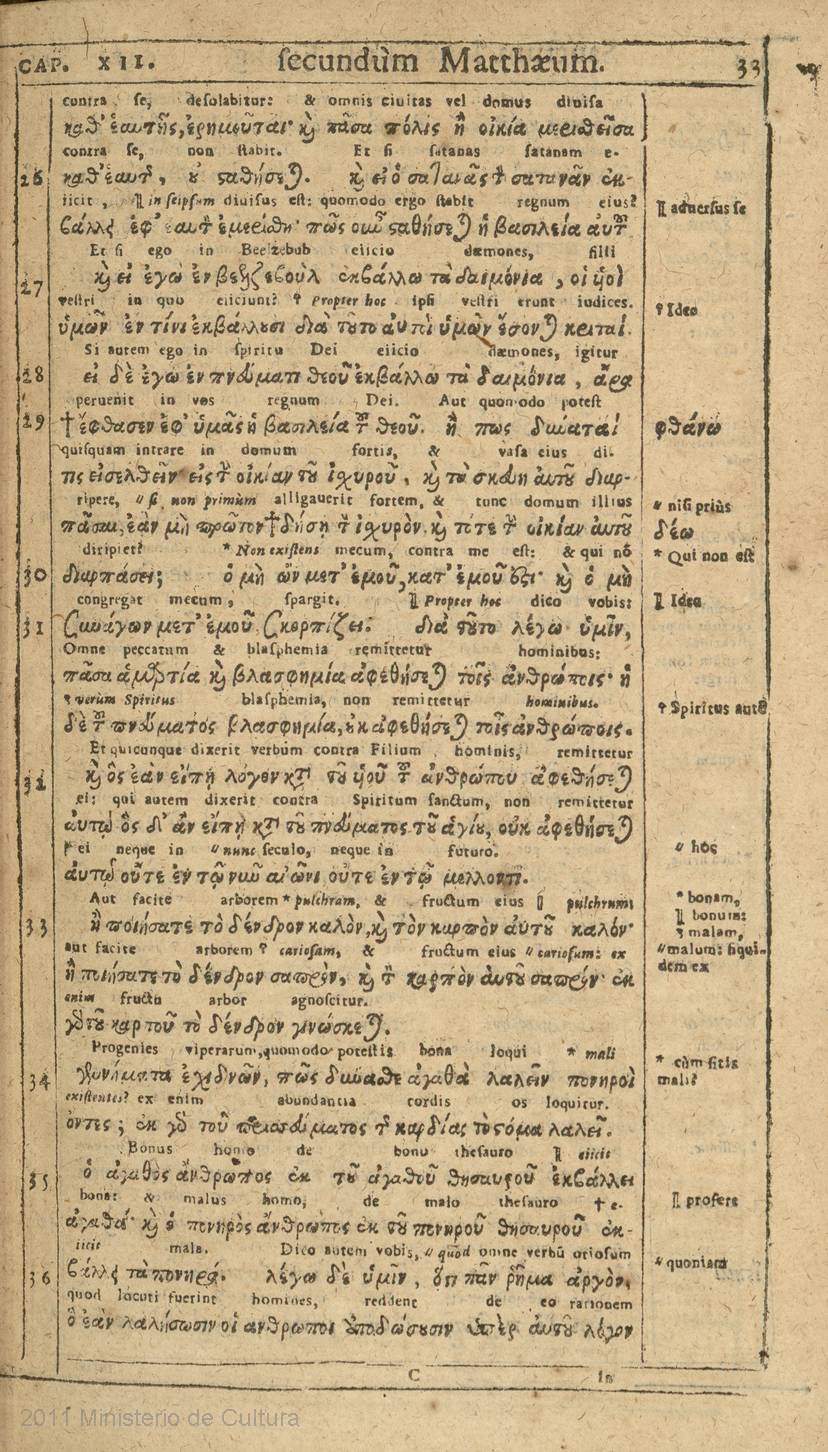 CAP. XII. secundùm Matthæum. 33
contra se, desolabitur: & omnis ciuitas vel domus diuisa
καθ' ἑαυτῆς, ἐρημοῦται· καὶ πᾶσα πόλις ἢ οἰκία μερισθεῖσα
contra se, non stabit. Et si satanas satanam e-
26 καθ' ἑαυτῆς, οὐ σταθήσεται. καὶ εἰ ὁ σατανᾶς τὸν σατανᾶν ἐκ-
iicit, ¶ in seipsum diuisus est: quomodo ergo stabit regnum eius? ¶ aduersus se
βάλλει, ἐφ' ἑαυτὸν ἐμερίσθη· πῶς οὖν σταθήσεται ἡ βασιλεία αὐτοῦ
Et si ego in Beelzebub eiicio dæmones, filii
27 καὶ εἰ ἐγὼ ἐν βεελζεβοὺλ ἐκβάλλω τὰ δαιμόνια, οἱ υἱοὶ
vestri in quo eiiciunt? ⸮ Propter hoc ipsi vestri erunt iudices. ⸮ Ideo
ὑμῶν ἐν τίνι ἐκβάλλουσι διὰ τοῦτο αὐτοὶ ὑμῶν ἔσονται κριταί.
Si autem ego in spiritu Dei eiicio dæmones, igitur
28 εἰ δὲ ἐγὼ ἐν πνεύματι θεοῦ ἐκβάλλω τὰ δαιμόνια, ἄρα
peruenit in vos regnum Dei. Aut quomodo potest
29 † ἔφθασεν ἐφ' ὑμᾶς ἡ βασιλεία τοῦ θεοῦ. ἢ πως δύναταί φθάνω
quisquam intrare in domum fortis, & vasa eius di-
τις εἰσελθεῖν εἰς τὴν οἰκίαν τοῦ ἰσχυροῦ, καὶ τὰ σκεύη αὐτοῦ διαρ-
ripere, // si non primùm alligauerit fortem, & tunc domum illius // nisi priùs
πάσαι, ἐὰν μὴ πρῶτον † δήσῃ τὸν ἰσχυρὸν. καὶ τότε τὴν οἰκίαν αὐτοῦ δέω
diripiet? * Non existens mecum, contra me est: & qui nō * Qui non est
30 διαρπάσει; ὁ μὴ ὢν μετ' ἐμοῦ, κατ' ἐμοῦ ἐστι· καὶ ὁ μὴ
congregat mecum, spargit. ¶ Propter hoc dico vobis: ¶ Ideo
31 συνάγων μετ' ἐμοῦ. σκορπίζει. διὰ τοῦτο λέγω ὑμῖν,
Omne peccatum & blasphemia remittetur hominibus:
πᾶσα ἁμαρτία καὶ βλασφημία ἀφεθήσεται τοῖς ἀνθρώποις· ἡ
⸮ verùm Spiritus blasphemia, non remittetur hominibus. ⸮ Spiritus autē
δὲ τοῦ πνεύματος βλασφημία, οὐκ ἀφεθήσεται τοῖς ἀνθρώποις.
Et quicunque dixerit verbum contra Filium hominis, remittetur
32 καὶ ὃς ἐὰν εἴπῃ λόγον κατὰ τοῦ υἱοῦ τοῦ ἀνθρώπου ἀφεθήσεται
ei: qui autem dixerit contra Spiritum sanctum, non remittetur
αὐτῷ ὃς δ' ἂν εἴπῃ κατὰ τοῦ πνεύματος τοῦ ἁγίου, οὐκ ἀφεθήσεται
ei neque in // nunc seculo, neque in futuro. // hoc
αὐτῷ οὔτε ἐν τῷ νῦν αἰῶνι οὔτε ἐν τῷ μέλλοντι.
Aut facite arborem * pulchram, & fructum eius ¶ pulchrum: * bonam, ¶ bonum:
33 ἢ ποιήσατε τὸ δένδρον καλὸν, καὶ τὸν καρπὸν αὐτοῦ καλόν· ⸮ malam,
aut facite arborem ⸮ cariosam, & fructum eius // cariosum: ex // malum: siqui-
ἢ ποιήσατε τὸ δένδρον σαπρὸν, καὶ τὸν καρπὸν αὐτοῦ σαπρόν· ἐκ dem ex
enim fructu arbor agnoscitur.
γὰρ τοῦ καρποῦ τὸ δένδρον γινώσκεται.
Progenies viperarum, quomodo potestis bona loqui * mali * cùm sitis
34 γεννήματα ἐχιδνῶν, πῶς δύνασθε ἀγαθὰ λαλεῖν πονηροὶ mali?
existentes? ex enim abundantia cordis os loquitur.
ὄντες; ἐκ γὰρ τοῦ περισσεύματος τῆς καρδίας τὸ στόμα λαλεῖ.
Bonus homo de bono thesauro ¶ eiicit
35 ὁ ἀγαθὸς ἄνθρωπος ἐκ τοῦ ἀγαθοῦ θησαυροῦ ἐκβάλλει
bona: & malus homo, de malo thesauro † e- ¶ profert
ἀγαθά· καὶ ὁ πονηρὸς ἄνθρωπος ἐκ τοῦ πονηροῦ θησαυροῦ ἐκ-
iicit mala. Dico autem vobis, // quòd omne verbū otiosum // quoniam
36 βάλλει τὰ πονηρά. λέγω δὲ ὑμῖν, ὅτι πᾶν ῥῆμα ἀργὸν,
quod locuti fuerint homines, reddent de eo rationem
ὁ ἐὰν λαλήσωσιν οἱ ἄνθρωποι ἀποδώσουσιν περὶ αὐτοῦ λόγον
C In
2011 Ministerio de Cultura